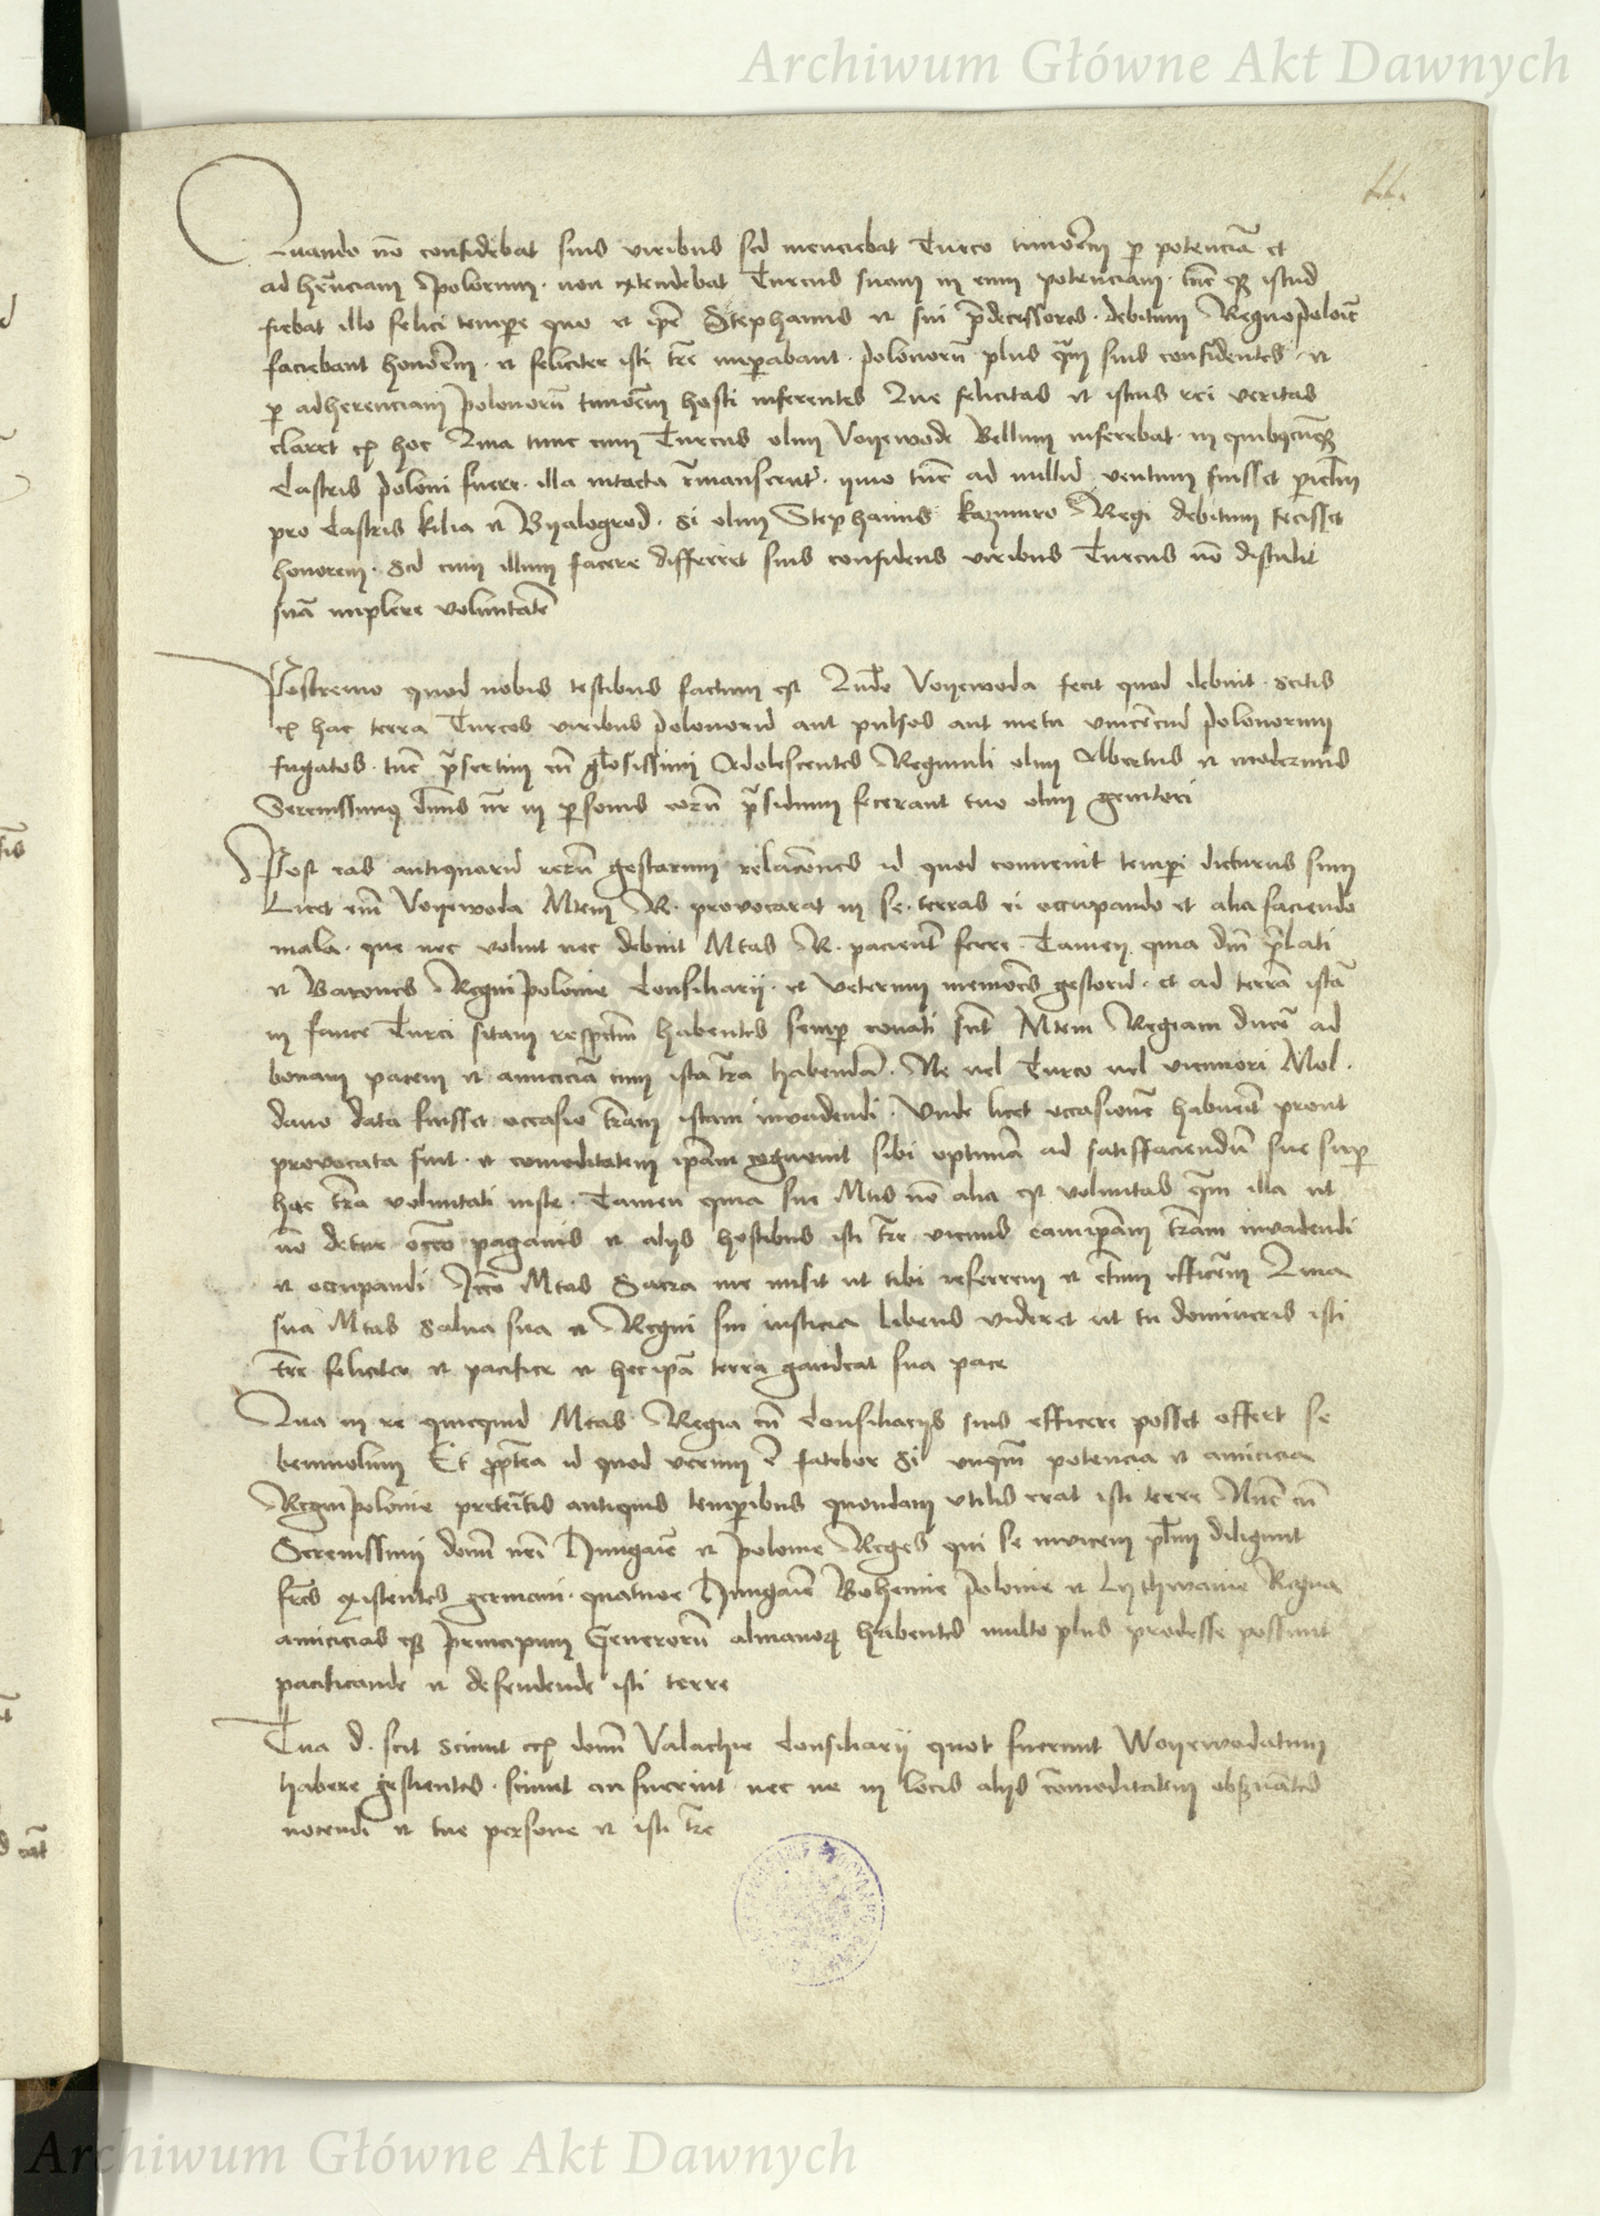 Archiwum Główne Akt Dawnych
Quando nō confidebat suis viribus sed incuciebat Turco timorēm p potenciā et
adhēnciam Polonum · non extendebat Turcus suam in eum potenciam · tūc eciam istud
fiebat illo felici tempore quo et ip̄e Stephanus et sui p̄decessores · debitum Regno polōie
faciebant honōrem · et feliciter isti t̄re imp̄abant · polonorū plus q̄m suis confidentes · et
p adherenciam polonorū timōrem hosti inferentes Que felicitas et istius rei veritas
claret ex hoc Quia tunc cum Turcus olim Voyewode Bellum inferebat · in quibuscūq
Castris poloni fuere · illa intacta r̄manserūt · ymo tūc ad nullū ventum fuisset piclm̄
pro Castris Kilia et Byalogrod · Si olim Stephanus Kazimiro Regi debitum fecisset
honorem · Sed cum illum facere differret suis confidens viribus Turcus nō distulit
suā implere voluntatē
Postremo quod nobis testibus factum est Quādo Voyewoda fecit quod debuit · scitis
ex hac terra Turcos viribus polonorū aut pulsos aut metu polonorum
fugatos · tūc p̄sertim cū gl̄osissimi Adolescentes Reguuli olim Albertus et modernus
Serenissimus dn̄us nr̄ in p̄sonis eorū p̄sidium fecerant tuo olim genitori
Post eas antiquarū rerū gestarum relacōnes id quod convenit temp̄i dicturus sum
Licet em̄ Voyewoda Mtem R · provocarat in se · terras ei occupando et alia faciendo
mala · que nec voluit nec debuit Mtas R · pacient̄ ferre · Tamen quia dn̄i p̄lati
et Barones Regni polonie Consiliarij · et veterum memōres gestorū · et ad terrā istā
in fauce Turci sitam respectum habentes semp conati sūt Mtem Regiam ducē ad
bonam pacem et amiciciā cum ista t̄ra habendā · Ne vel Turco vel viciniori Mol ·
davo data fuisset occasio t̄ram istam invadendi · Unde licet occasionē habuerit prout
provocata fuit · et comoditatem ip̄am cognovit sibi optimā ad satisfaciendū sue sup
hac t̄ra voluntati iuste · Tamen quia sue Mtis nō alia est voluntas q̄m illa ut
nō detur occ̄o paganis et alijs hostibus isti t̄re vicinis eam ip̄am t̄ram invadendi
et occupandi Icc̄o Mtas Sacra me misit ut tibi referrem et ctum efficērem Quia
sua Mtas salva sua et Regni sui iusticia libens videret ut tu domineris isti
t̄re feliciter et pacifice et hec ip̄a terra gaudeat sua pace
Qua in re quicquid Mtas Regia cū Consiliarijs suis efficere posset offert se
benivolum Et p̄pterea id quod verum ē fatebor Si unq̄m potencia et amicicia
Regni polonie preterītis antiquis temp̄ibus quondam utilis erat isti terre Nūc cū
Serenissimi domī nr̄i Hungarīe et polonie Reges qui se invicem pl̄m diligunt
fr̄es existentes germani · quatuor Hungarīe Bohemie Polonie et Lythwanie Regna
amicicias q Principum Generorū almanorum habentes multo plus prodesse possunt
pacificande et defendende isti terre
Tua d · scit sciunt domī Valachie Consiliarij quot fuerunt Woyewodatum
habere gestientes · sciunt an fuerint nec ne in locis alijs cōmoditatem obs̄vātes
nocendi et tue persone et isti t̄re
Archiwum Główne Akt Dawnych